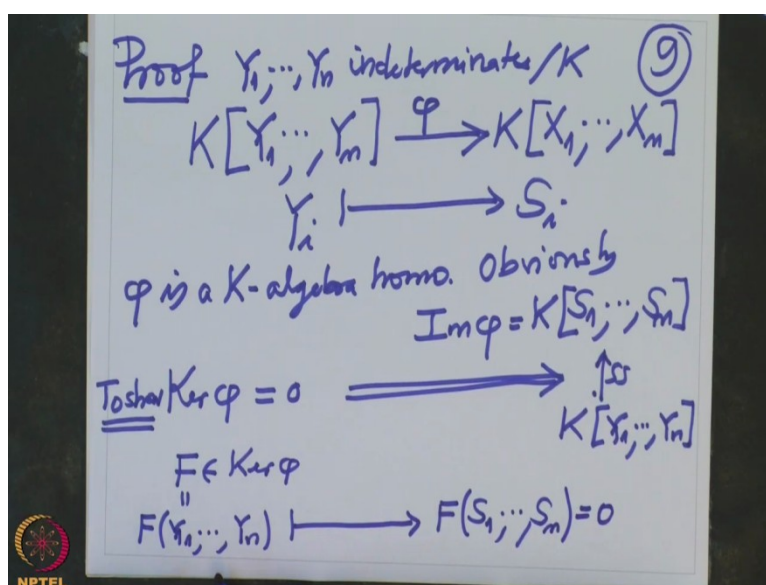 Proof Y₁,…,Yn indeterminates/K ⑨
K[Y₁,…,Yn] —φ→ K[X₁,…,Xn]
Yᵢ ⟼ Sᵢ
φ is a K-algebra homo. Obviously
Im φ = K[S₁,…,Sn]
To show Ker φ = 0 ⟹ ↑≅
K[Y₁,…,Yn]
F ∈ Ker φ
॥
F(Y₁,…,Yn) ⟼ F(S₁,…,Sn) = 0
NPTEL